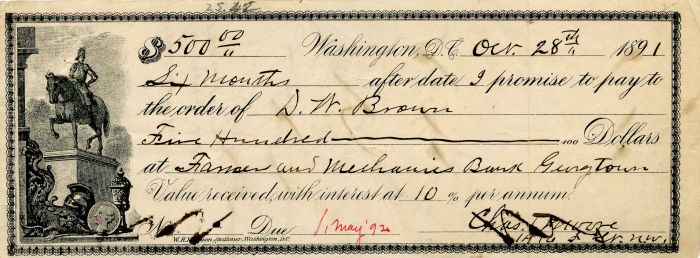 25.42
$ 500 00/" Washington, D.C. Oct. 28th 1891
Six Months after date I promise to pay to
the order of D. W. Brown
Five Hundred 100 Dollars
at Farmer and Mechanics Bank Georgtown
Value received, with interest at 10 % per annum.
No. Due 1, May '92 Chas.
W.H. Stationer, Washington, D.C. St. N.W.